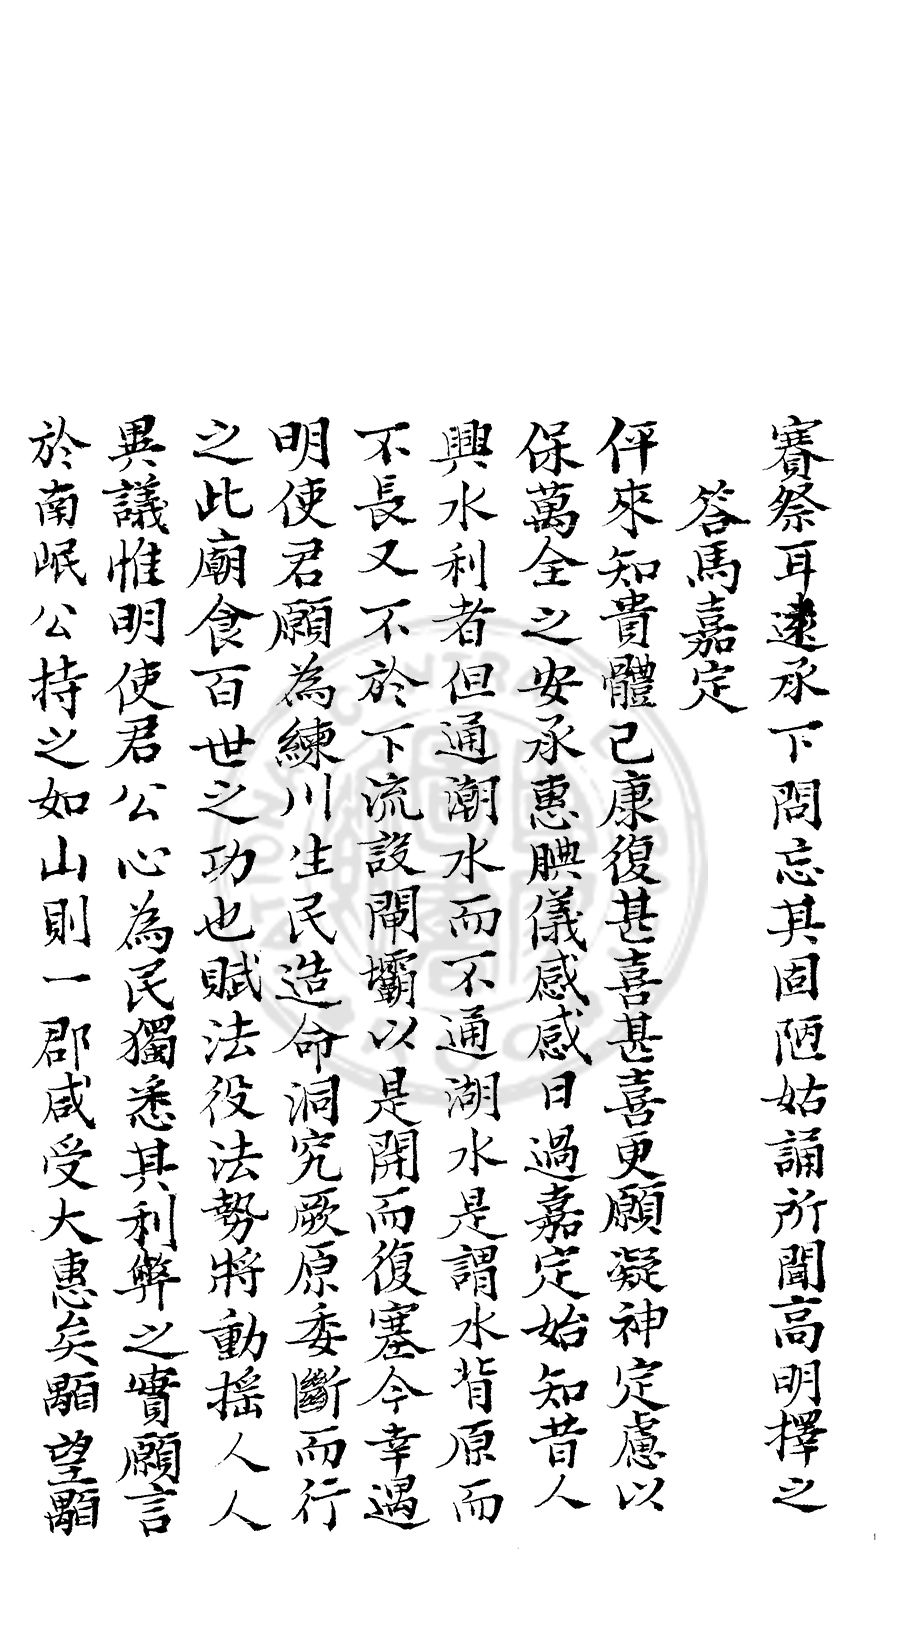 賽祭耳遠承下問忘其固陋姑誦所聞高明擇之
答馬嘉定
伻來知貴體已康復甚喜甚喜更願凝神定慮以
保萬全之安承惠腆儀感感日過嘉定始知昔人
興水利者但通潮水而不通湖水是謂水背原而
不長又不於下流設閘壩以是開而復塞今幸遇
明使君願為練川生民造命洞究厥原委斷而行
之此廟食百世之功也賦法役法勢將動搖人人
異議惟明使君公心為民獨悉其利弊之實願言
於南岷公持之如山則一郡咸受大惠矣顒望顒